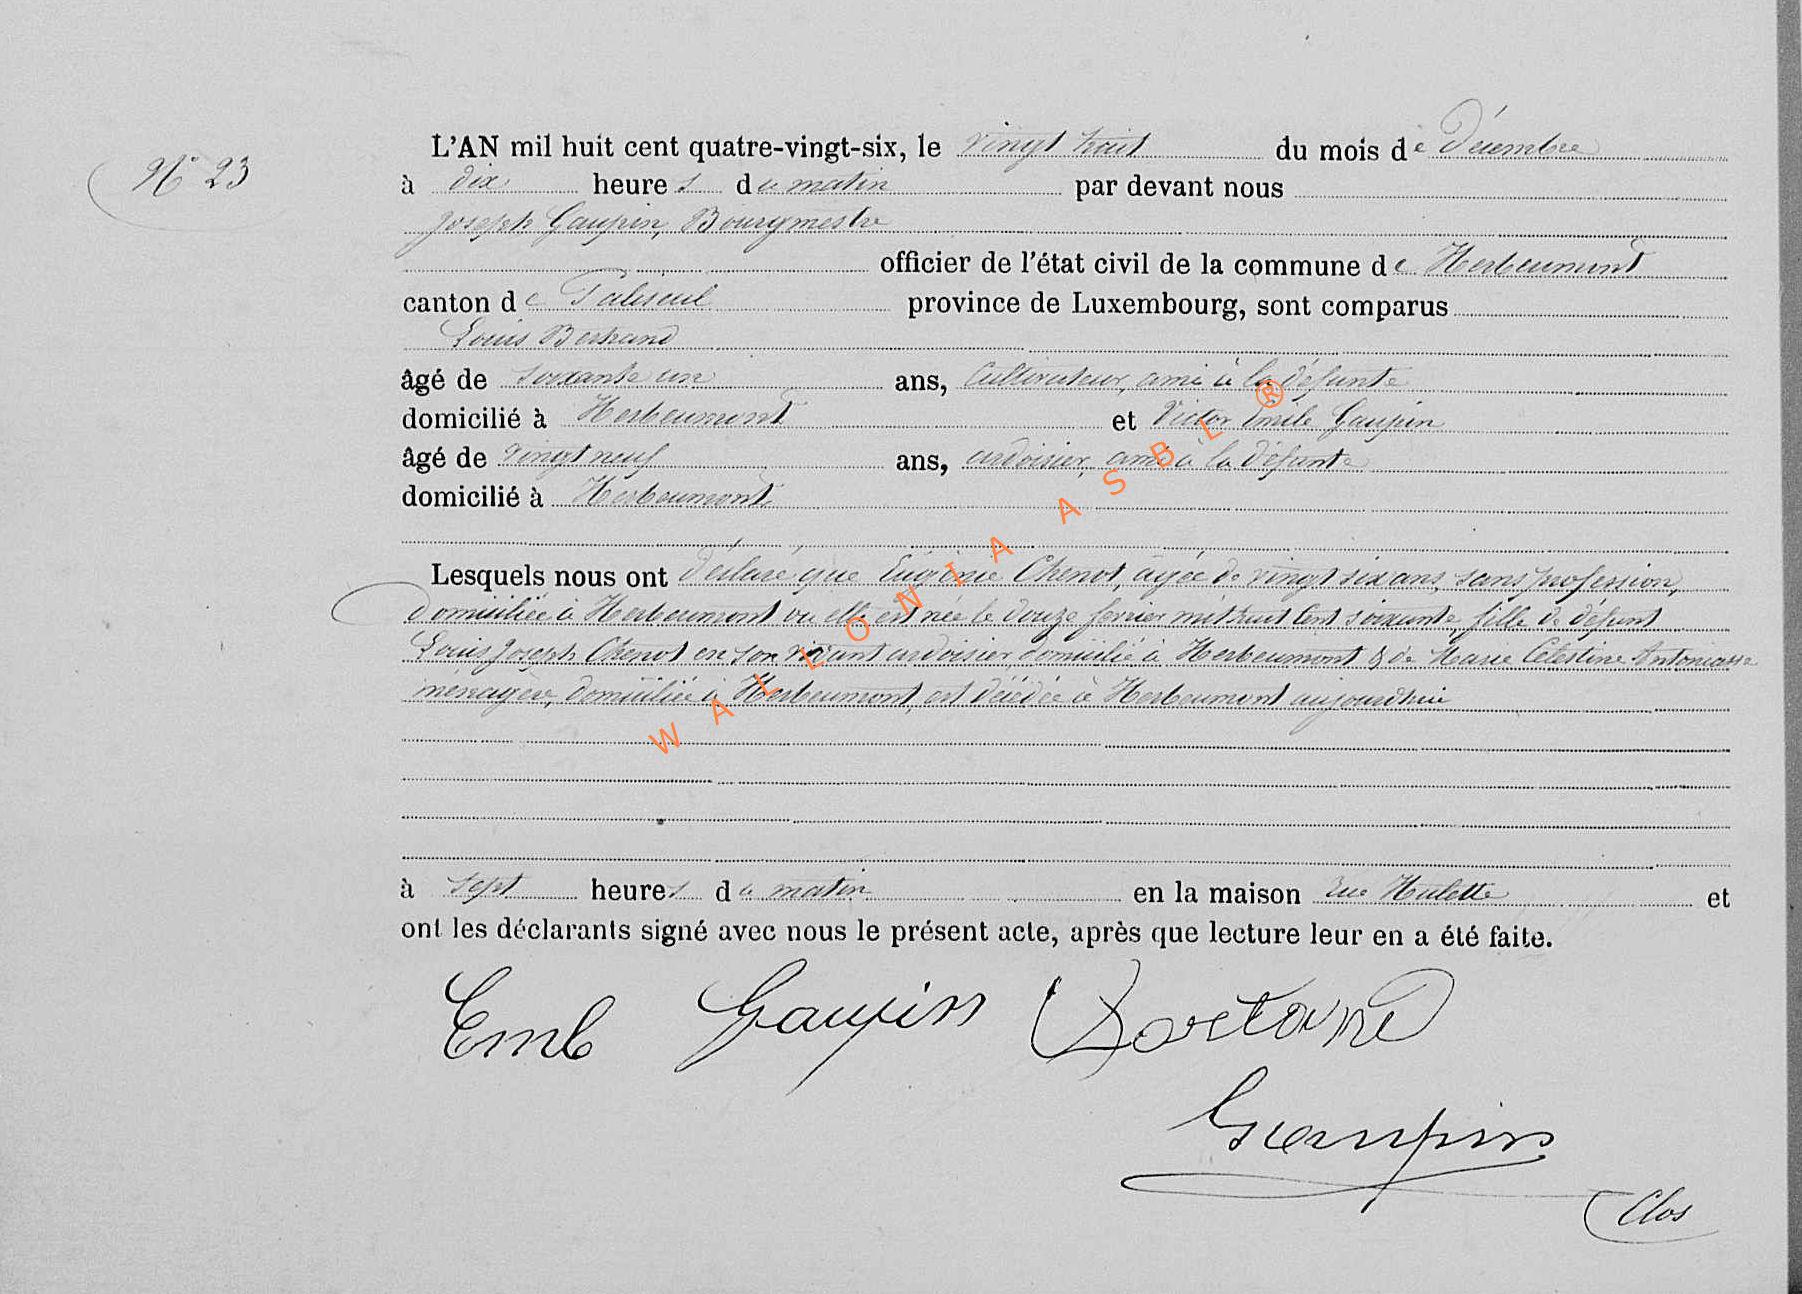 N° 23
L'AN mil huit cent quatre-vingt-six, le vingt huit du mois de Décembre
à dix heures du matin par devant nous
Joseph Gaupin, Bourgmestre
officier de l'état civil de la commune de Herbeumont
canton de Paliseul province de Luxembourg, sont comparus
Louis Bertrand
âgé de soixante un ans, Cultivateur, ami à la défunte
domicilié à Herbeumont et Victor Emile Gaupin
âgé de vingt neuf ans, ardoisier, ami à la défunte
domicilié à Herbeumont
Lesquels nous ont déclaré que Eugénie Chenot, agée de vingt six ans, sans profession,
domiciliée à Herbeumont ou elle est née le douze fevrier mil huit Cent soixante, fille de défunt
Louis Joseph Chenot en son vivant ardoisier, domicilié à Herbeumont & de Marie Célestine Antoniasse
ménagère, domiciliée à Herbeumont, est décédée à Herbeumont aujourdhui
à sept heures du matin en la maison rue Hulette et
ont les déclarants signé avec nous le présent acte, après que lecture leur en a été faite.
Emb Gaupin Bertrand
Gaupin
Clos
WALLONIA ASBL ®